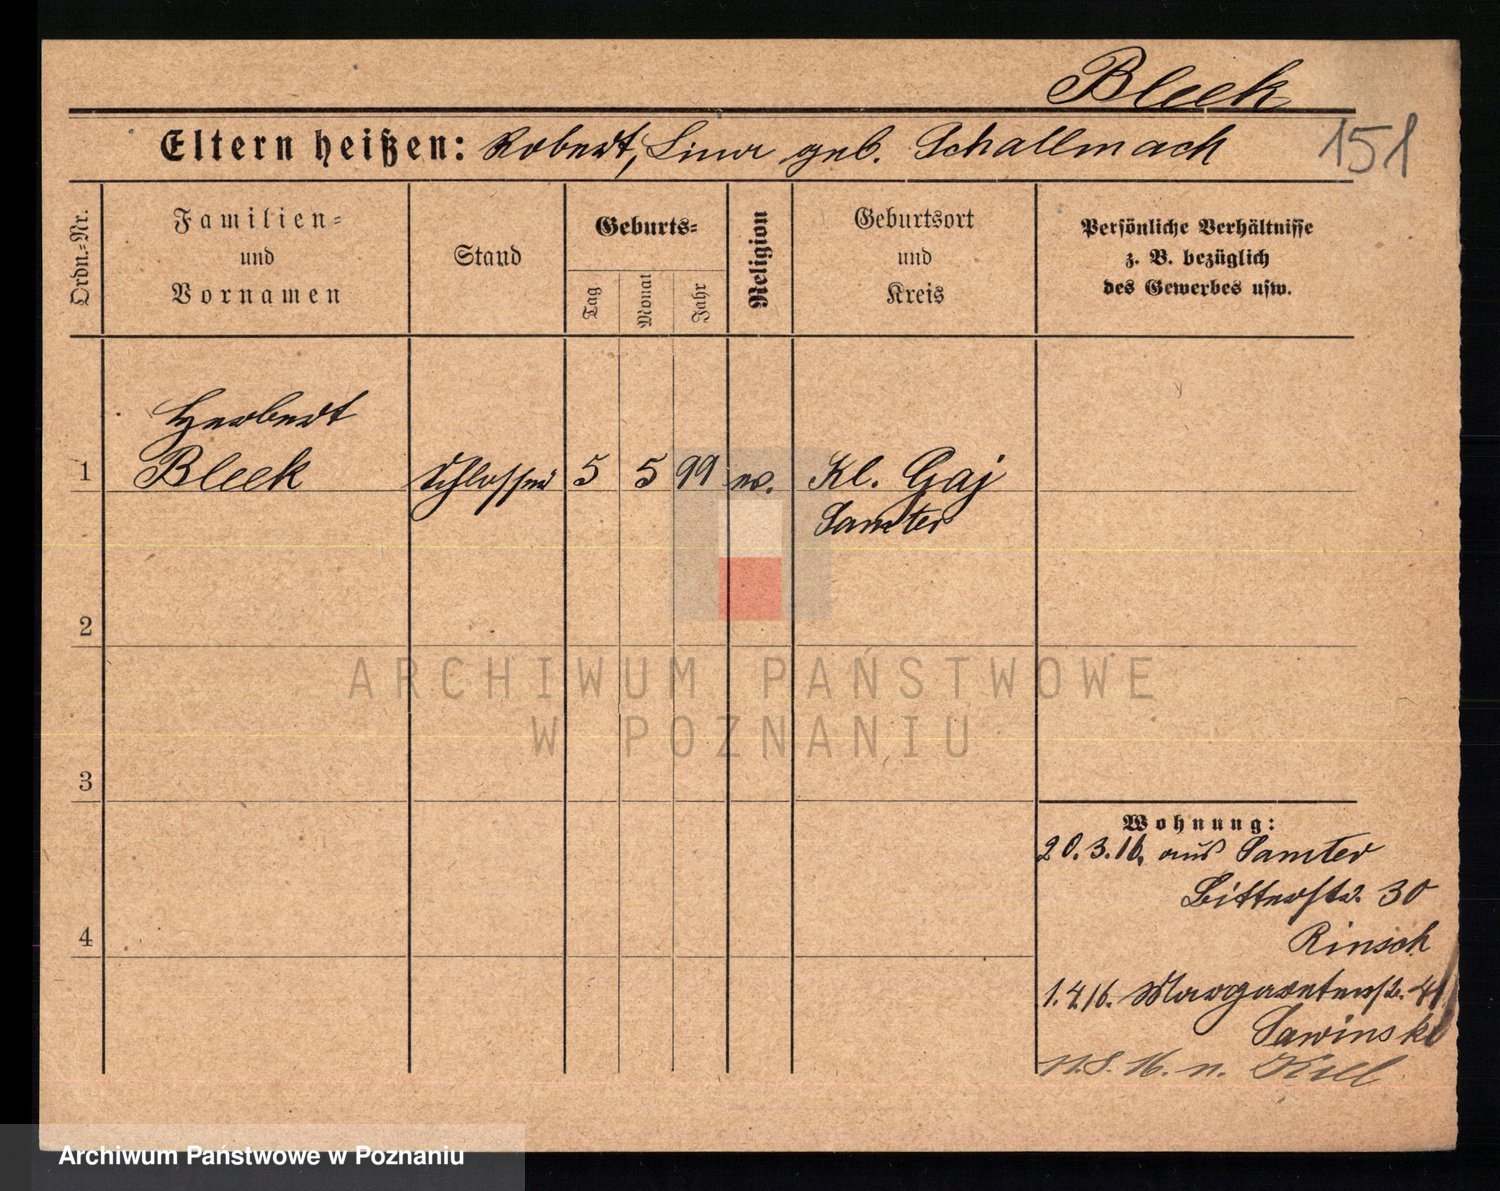 Bleek
Eltern heißen: Robert, Lina geb. Schallmach
151
Ordn.-Nr.
Familien- und Vornamen
Stand
Geburts-
Tag
Monat
Jahr
Religion
Geburtsort und Kreis
Persönliche Verhältnisse
z. B. bezüglich
des Gewerbes usw.
Herbert
1 Bleek Schlosser 5 5 99 ev. Kl. Gaj
Samter
2
3
4
Wohnung:
20.3.16. aus Samter
Bitterstr. 30
Rinsch
1.4.16. Margaretenstr. 41
Sawinski
11.8.16. n. Kiel
ARCHIWUM PAŃSTWOWE
W POZNANIU
Archiwum Państwowe w Poznaniu